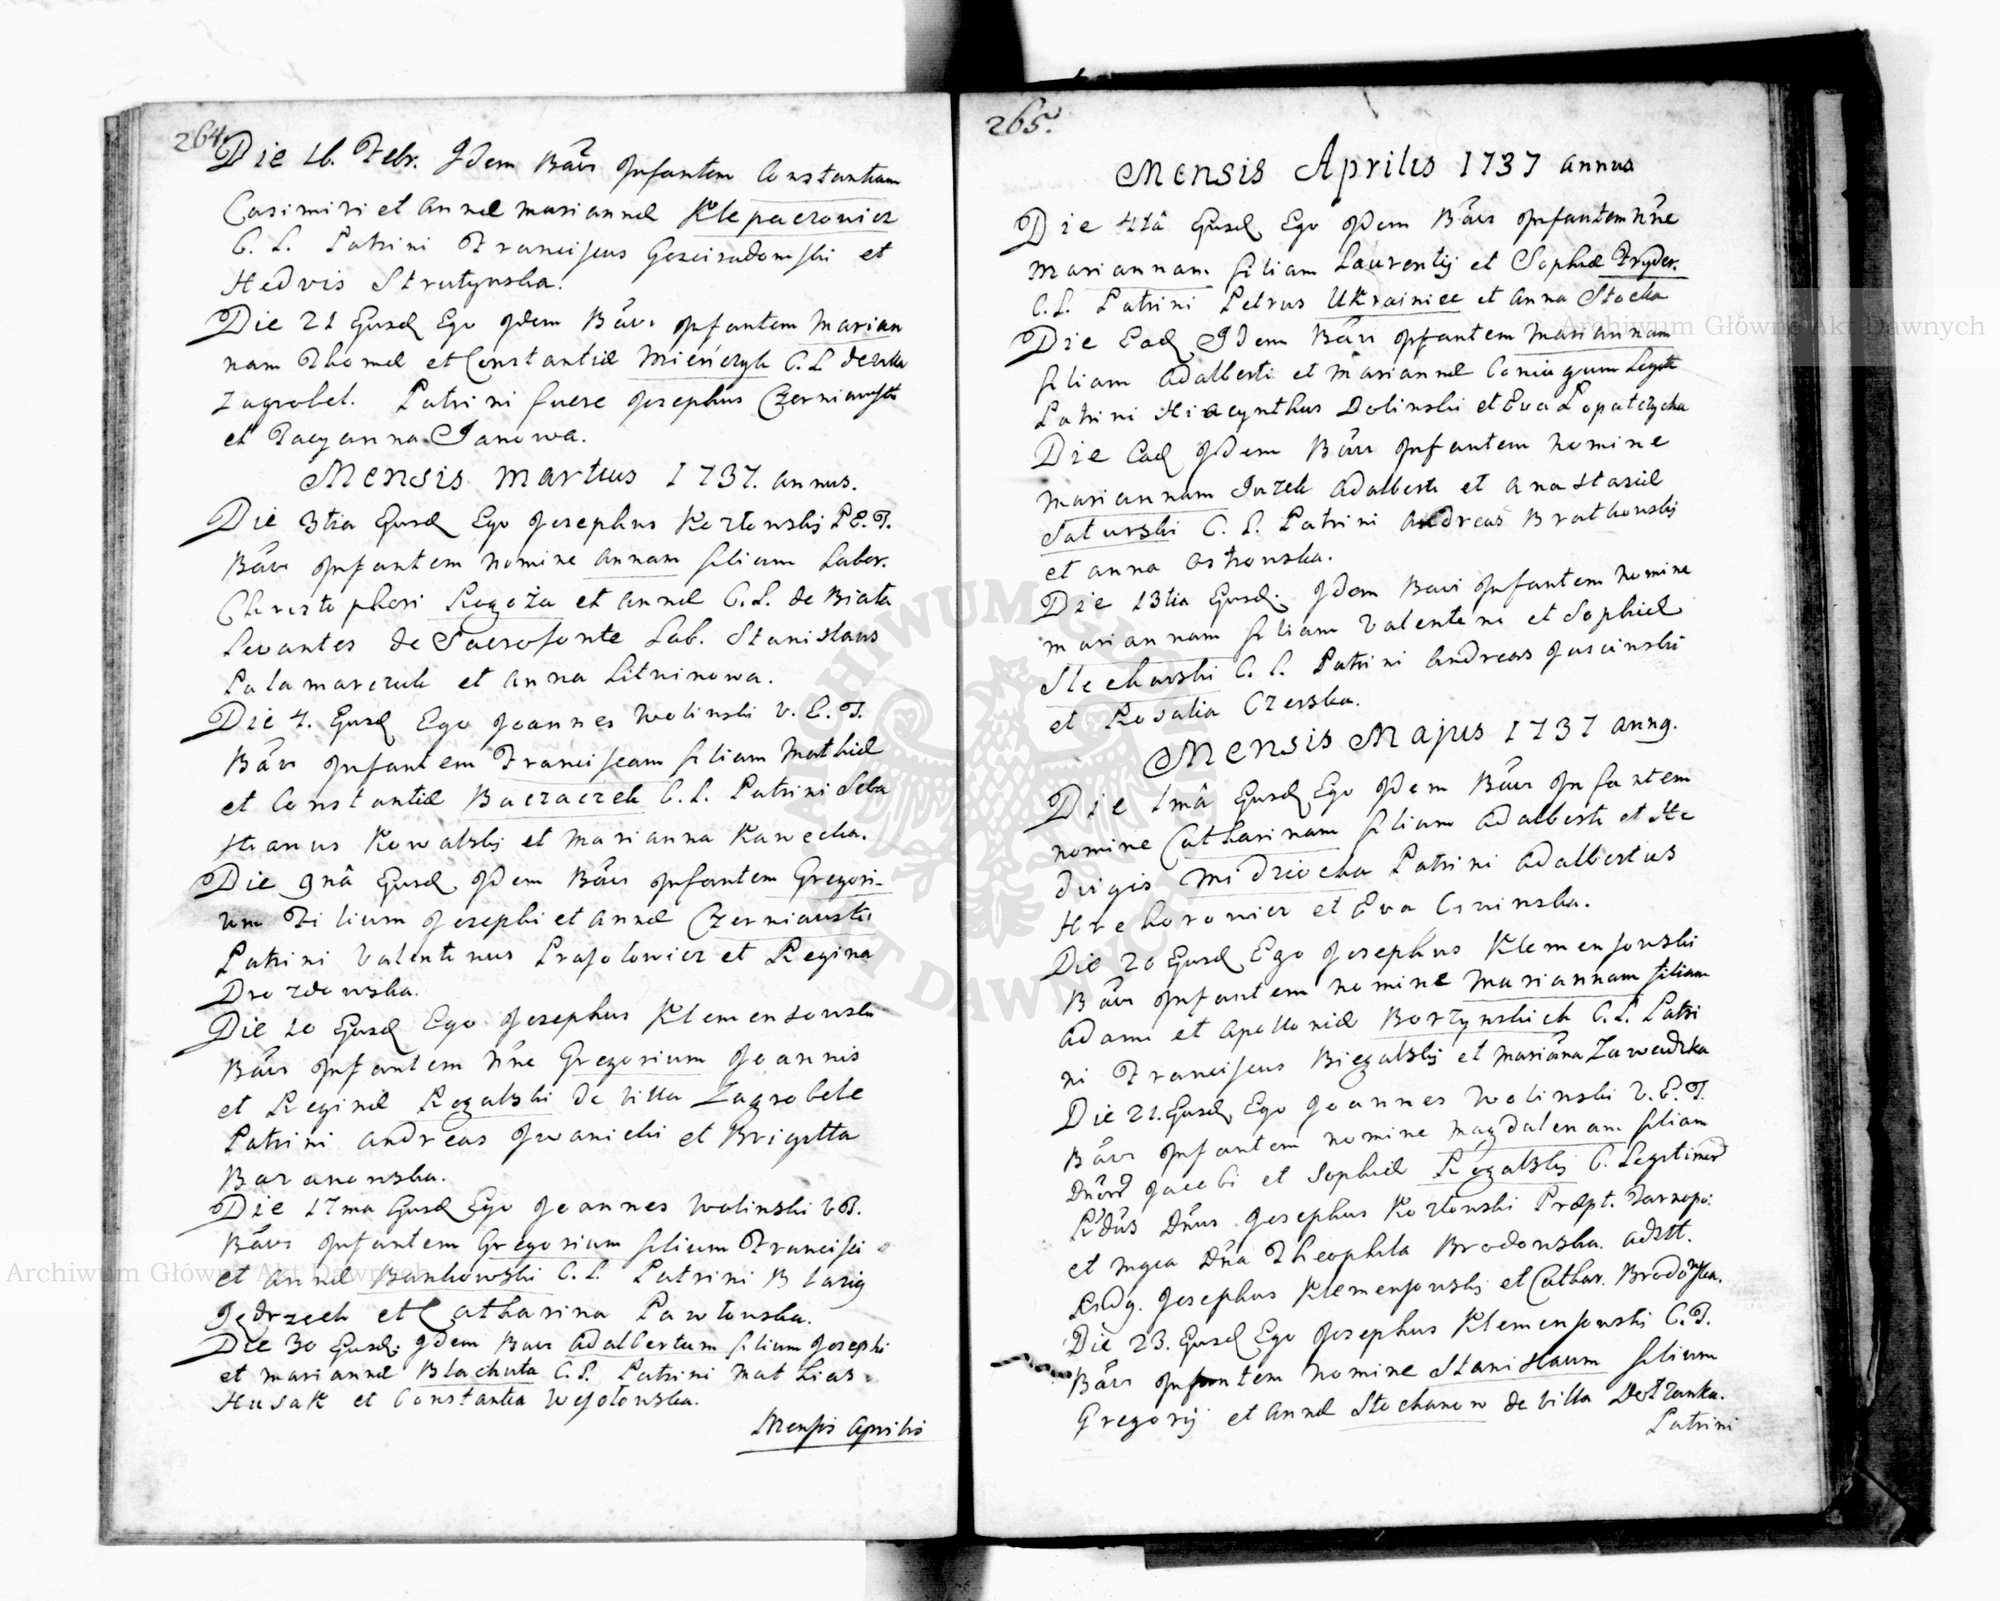 264.
Die 16. Febr. Idem Baȗi Infantem Constantiam
Casimiri et Annæ Mariannæ Klepaczowicz
C. L. Patrini Franciscus Gosciradowski et
Hedvis Strutynska.
Die 21 Ejusd Ego Idem Bavi Infantem Marian
nam Thomæ et Constantiæ Mieńczyk C. L de villa
Zagrobel. Patrini fuere Josephus Czerniawski
et Tacyanna Janowa.
Mensis Martius 1737. annus.
Die 3tia Ejusd Ego Josephus Kozłowskij P.C.T.
Bavi Infantem nomine Annam filiam Labor.
Christophori Rogoża et Annæ C. L. de Biała
Levantes de Sacrofonte Lab. Stanislaus
Palamarczuk et Anna Litwinowa.
Die 4. Ejusd Ego Joannes Wolinski V. E. T.
Bavi Infantem Franciscam filiam Mathiæ
et Constantiæ Baczaczek C. L. Patrini Seba
stianus Kowalskij et Marianna Kawecka.
Die 9nâ Ejusd Idem Bavi Infantem Gregori-
um Filium Josephi et Annæ Czerniawski
Patrini Valentinus Prasolowicz et Regina
Drozdowska.
Die 10 Ejusd Ego Josephus Klemensowski
Bavi Infantem nne Gregorium Joannis
et Reginæ Rogalski de Villa Zagrobele
Patrini Andreas Iwanicki et Brigitta
Baranowska.
Die 17ma Ejusd Ego Joannes Wolinski V.T.
Bavi Infantem Gregorium filium Francisci
et Annæ Bankowski C. L. Patrini Blasig
Jędrzech et Catharina Pawłowska.
Die 30 Ejusd. Idem Bavi Adalbertum filium Josephi
et Mariannæ Blachuta C. L. Patrini Mathias
Husak et Constantia Wesołowska.
Mensis Aprilis
265.
Mensis Aprilis 1737 annus
Die 4tâ Ejusd Ego Idem Bavi Infantem nne
Mariannam filiam Laurentij et Sophiæ Fryder.
C. L. Patrini Petrus Ukrainiec et Anna Stocka
Die Ead Idem Bavi Infantem Mariannam
filiam Adalberti et Mariannæ Coniugum Legit
Patrini Hiacynthus Dolinski et Eva Lopatczycha
Die Ead Idem Bavi Infantem Nomine
Mariannam Jozek Adalberti et Anastasiæ
Saturski C. L. Patrini Andreas Bratkowskij
et Anna Ostrowska.
Die 13tia Ejusd. Idem Bavi Infantem Nomine
Mariannam filiam Valentini et Sophiæ
Stecharski C. L. Patrini Andreas Juscinski
et Rosalia Czerska.
Mensis Majus 1737 annq.
Die 1mâ Ejusd Ego Idem Bavi Infantem
nomine Catharinam filiam Adalberti et He
dvigis Midziocha Patrini Adalbertus
Hrehorowicz et Eva Czwinska.
Die 20 Ejusd Ego Josephus Klemensowski
Bavi Infantem nomine Mariannam filiam
Adami et Apolloniæ Borzynskich C. L. Patri
ni Franciscus Biegalskij et Mariãna Zawadzka
Die 21. Ejusd Ego Joannes Wolinski V. E. T.
Bavi Infantem nomine Magdalenam filiam
Jacobi et Sophiæ Rogalskij C. Legitimor
Rdus Dnus Josephus Kozłowski Præpt. Tarnopo:
et Mgca Dna Theophila Brodowska. adstt.
Rndg. Josephus Klemensowskij et Cathar. Brodowska.
Die 23. Ejusd Ego Josephus Klemensowski C. T.
Bavi Infantem Nomine Stanislaum filium
Gregorij et Annæ Stochanow de Villa Dołzanka.
Patrini
Archiwum Główne Akt Dawnych
Archiwum Główne Akt Dawnych
ARCHIWUM GŁÓWNE AKT DAWNYCH